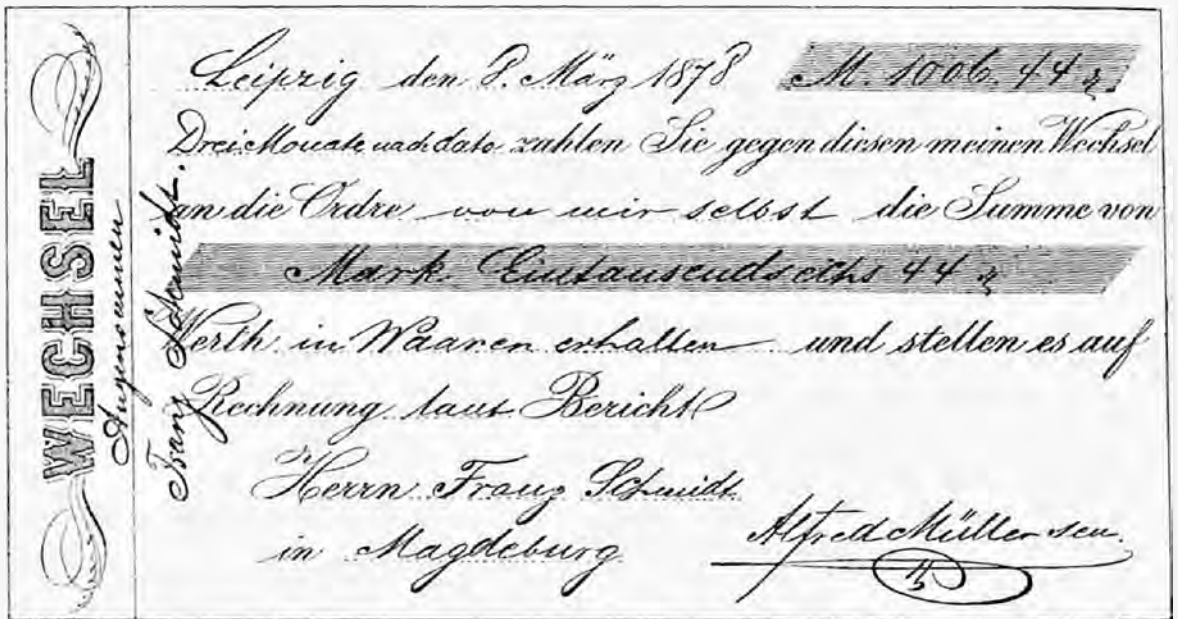 WECHSEL
Angenommen
Franz Schmidt.
Leipzig den 8. März 1878 M. 1006. 44 ₰
Drei Monate nach dato zahlen Sie gegen diesen meinen Wechsel
an die Ordre von mir selbst die Summe von
Mark. Eintausendsechs 44 ₰
Werth in Waaren erhalten und stellen es auf
Rechnung laut Bericht
Herrn Franz Schmidt
in Magdeburg
Alfred Müller sen.